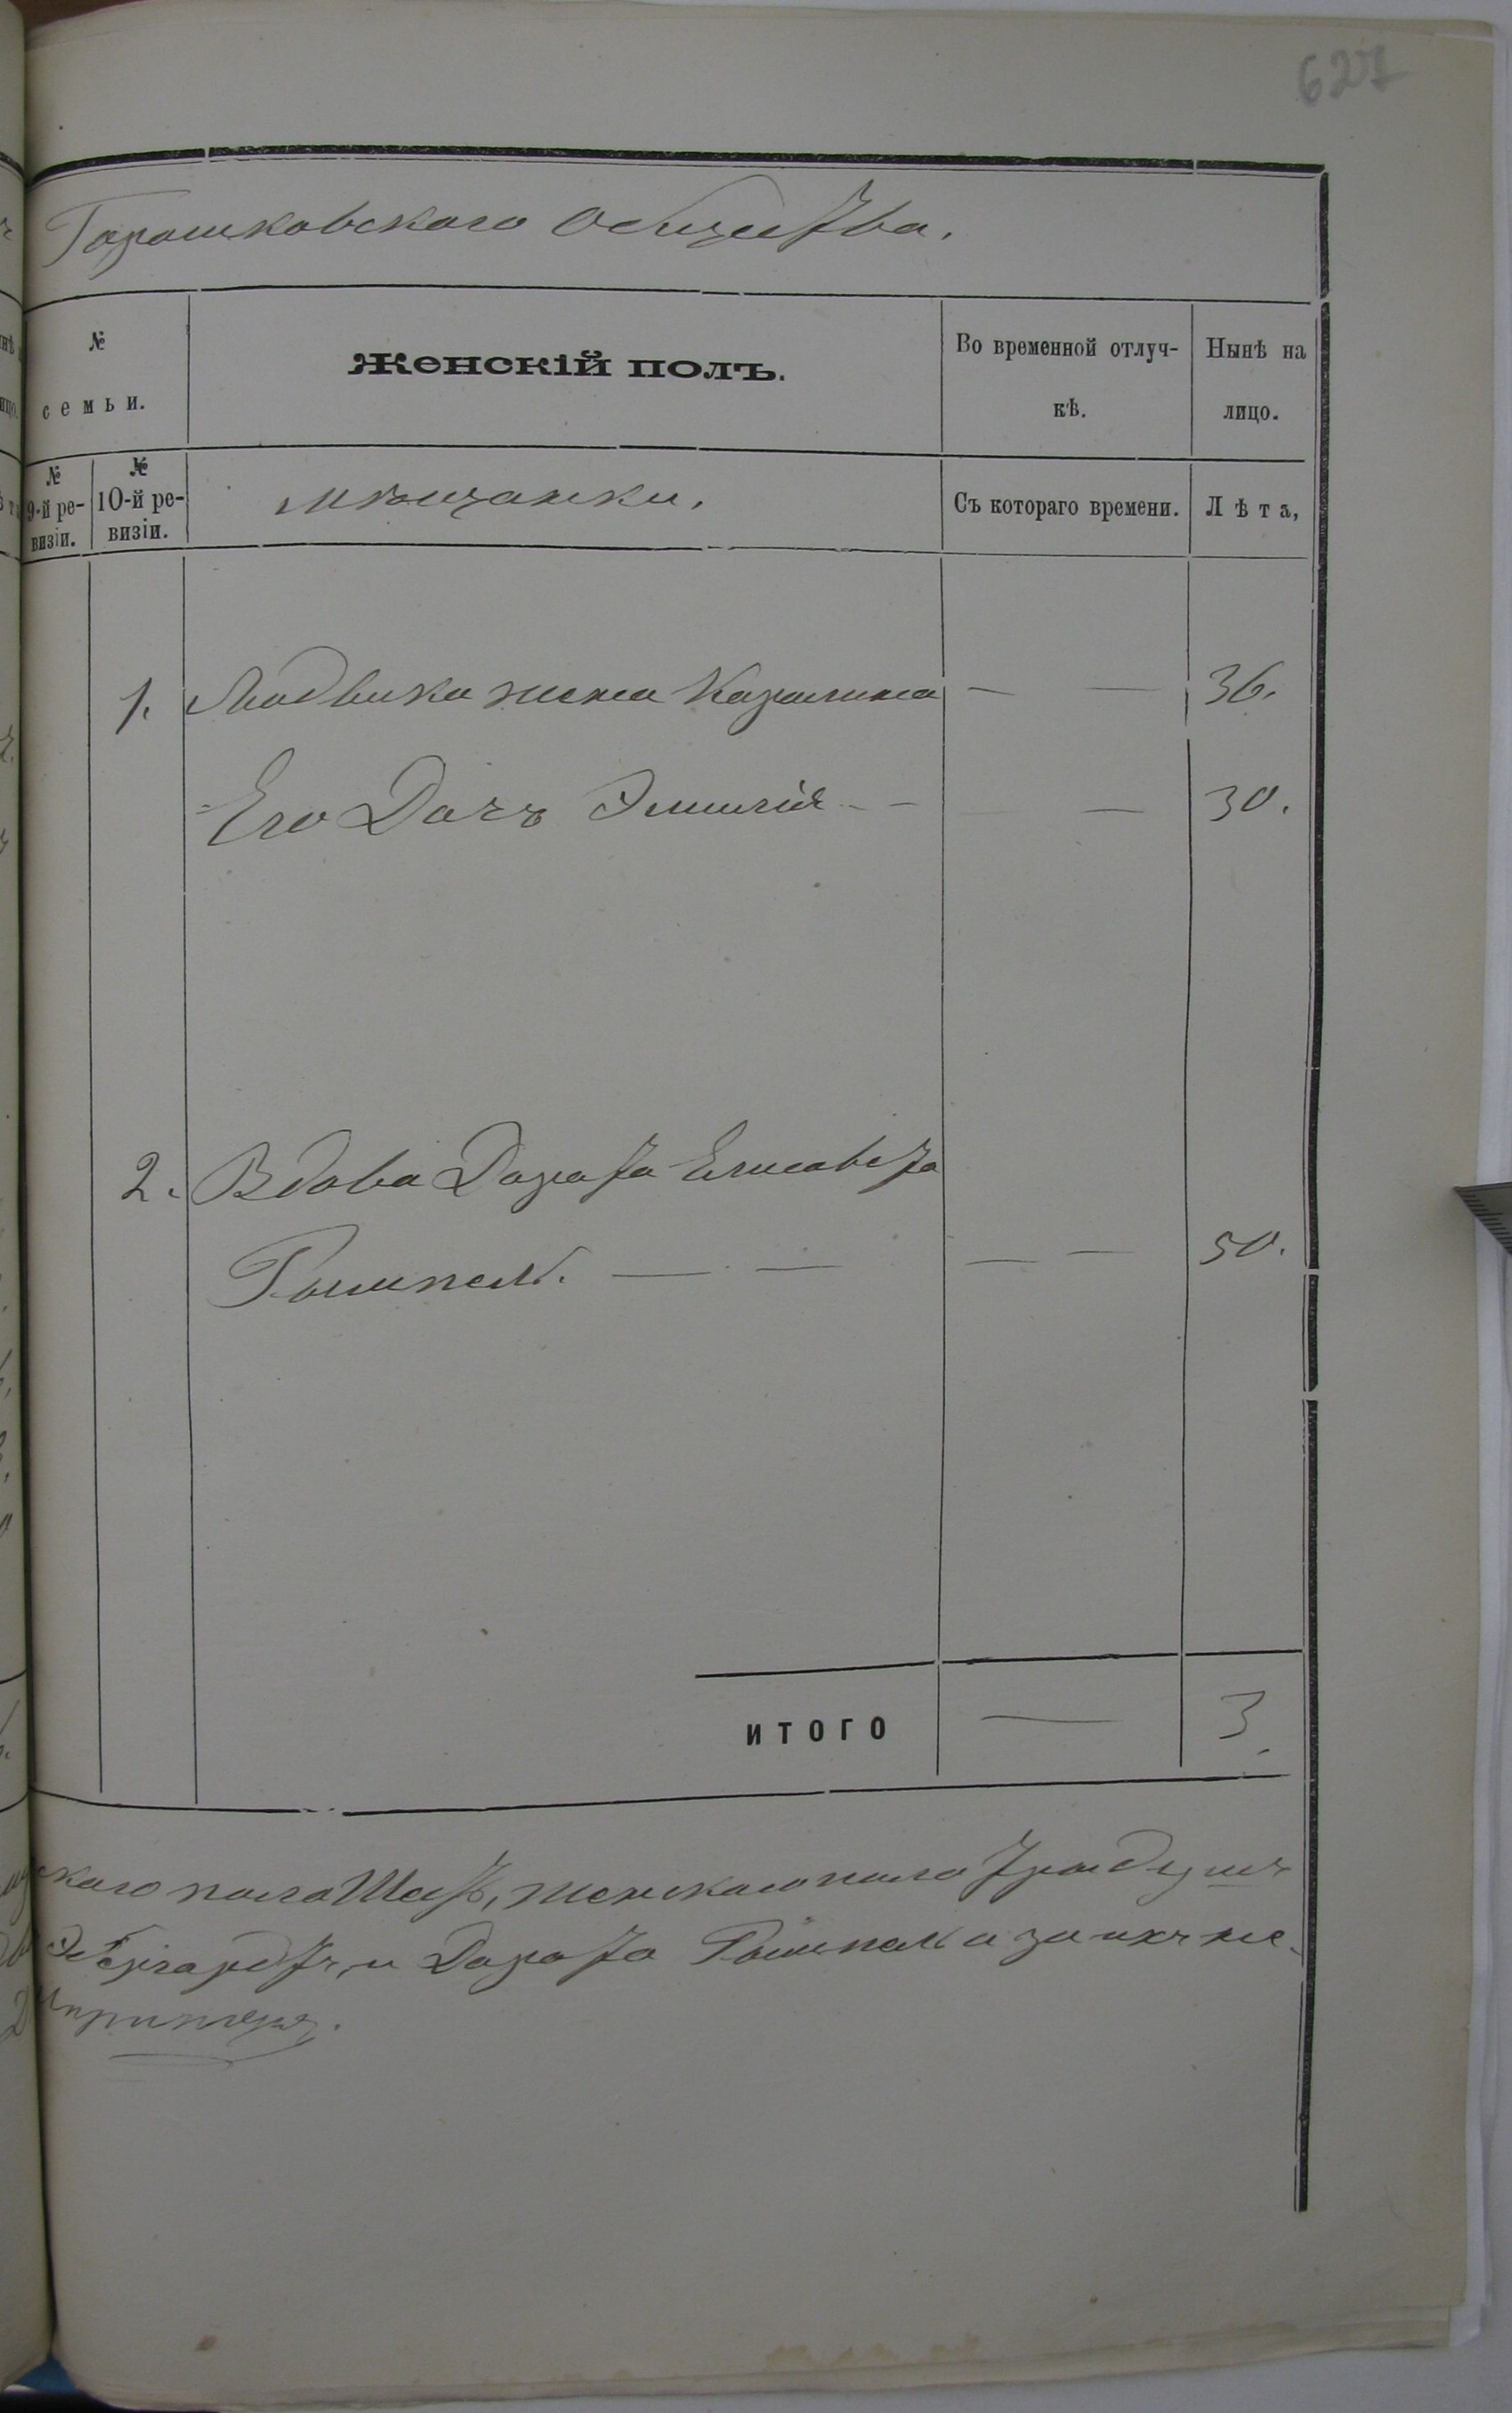 627
Горошковского Общества.
№
семьи.
Женскій полъ.
Во временной отлуч-
кѣ.
Нынѣ на
лицо.
№
9-й ре-
визіи.
№
10-й ре-
визіи.
мѣщанки.
Съ котораго времени.
Лѣта,
1. Людвика жена Каролина — — 36.
Его Дочь Эмилія - - — 30.
2. Вдова Дорота Елисавета
— — — — 50.
ИТОГО — 3.
ского пола Шесть, женского пола три души
и Дорота а за ихъ не-